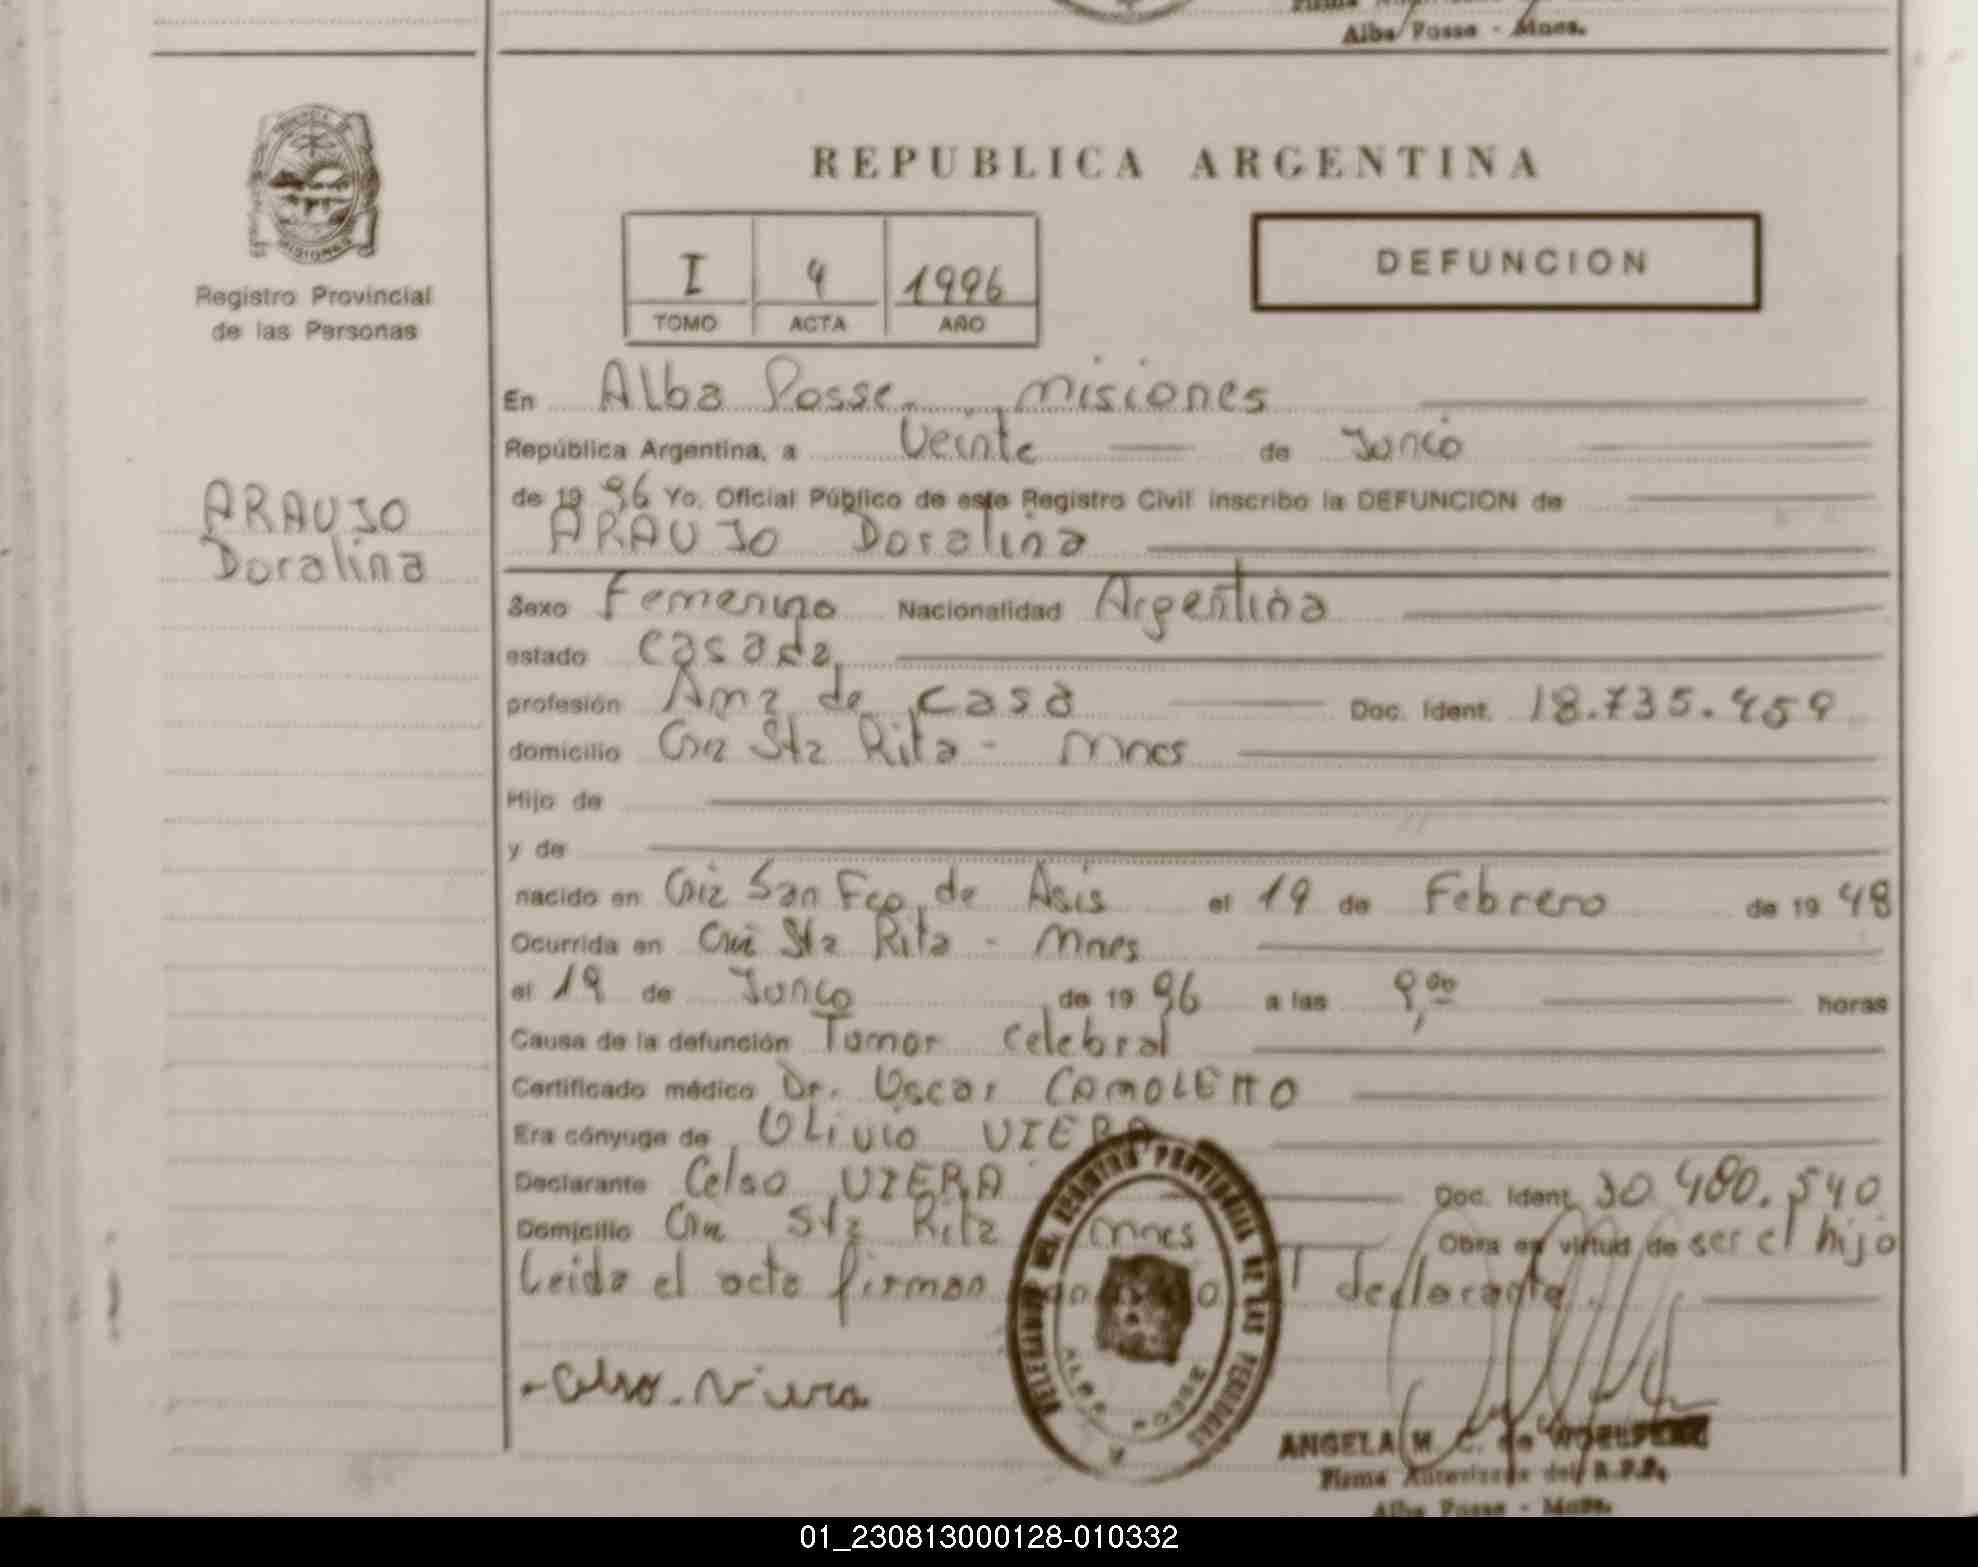 Alba Posse - Mnes.
REPUBLICA ARGENTINA
MISIONES
Registro Provincial
de las Personas
I 4 1996
TOMO ACTA AÑO
DEFUNCION
ARAUJO
Doralina
En Alba Posse, Misiones
República Argentina, a Veinte de Junio
de 19 96 Yo, Oficial Público de este Registro Civil inscribo la DEFUNCION de
ARAUJO Doralina
Sexo Femenino Nacionalidad Argentina
estado casada
profesión Ama de casa Doc. Ident. 18.735.459
domicilio Cnia Sta Rita - Mnes
Hijo de
y de
nacido en Cnia San Fco de Asis el 19 de Febrero de 19 48
Ocurrida en Cnia Sta Rita - Mnes
el 19 de Junio de 19 96 a las 9,00 horas
Causa de la defunción Tumor celebral
Certificado médico Dr. Oscar CAMOLETTO
Era cónyuge de Olivio VIERA
Declarante Celso VIERA Doc. Ident. 30.480.540
Domicilio Cnia Sta Rita Mnes Obra en virtud de ser el hijo
Leida el acta firman declarante.
Celso Viera
REGISTRO PROVINCIAL DE LAS PERSONAS
ALBA POSSE
ANGELA M. C. de
Firma Autorizada del R.P.P.
Alba Posse - Mnes.
01_230813000128-010332